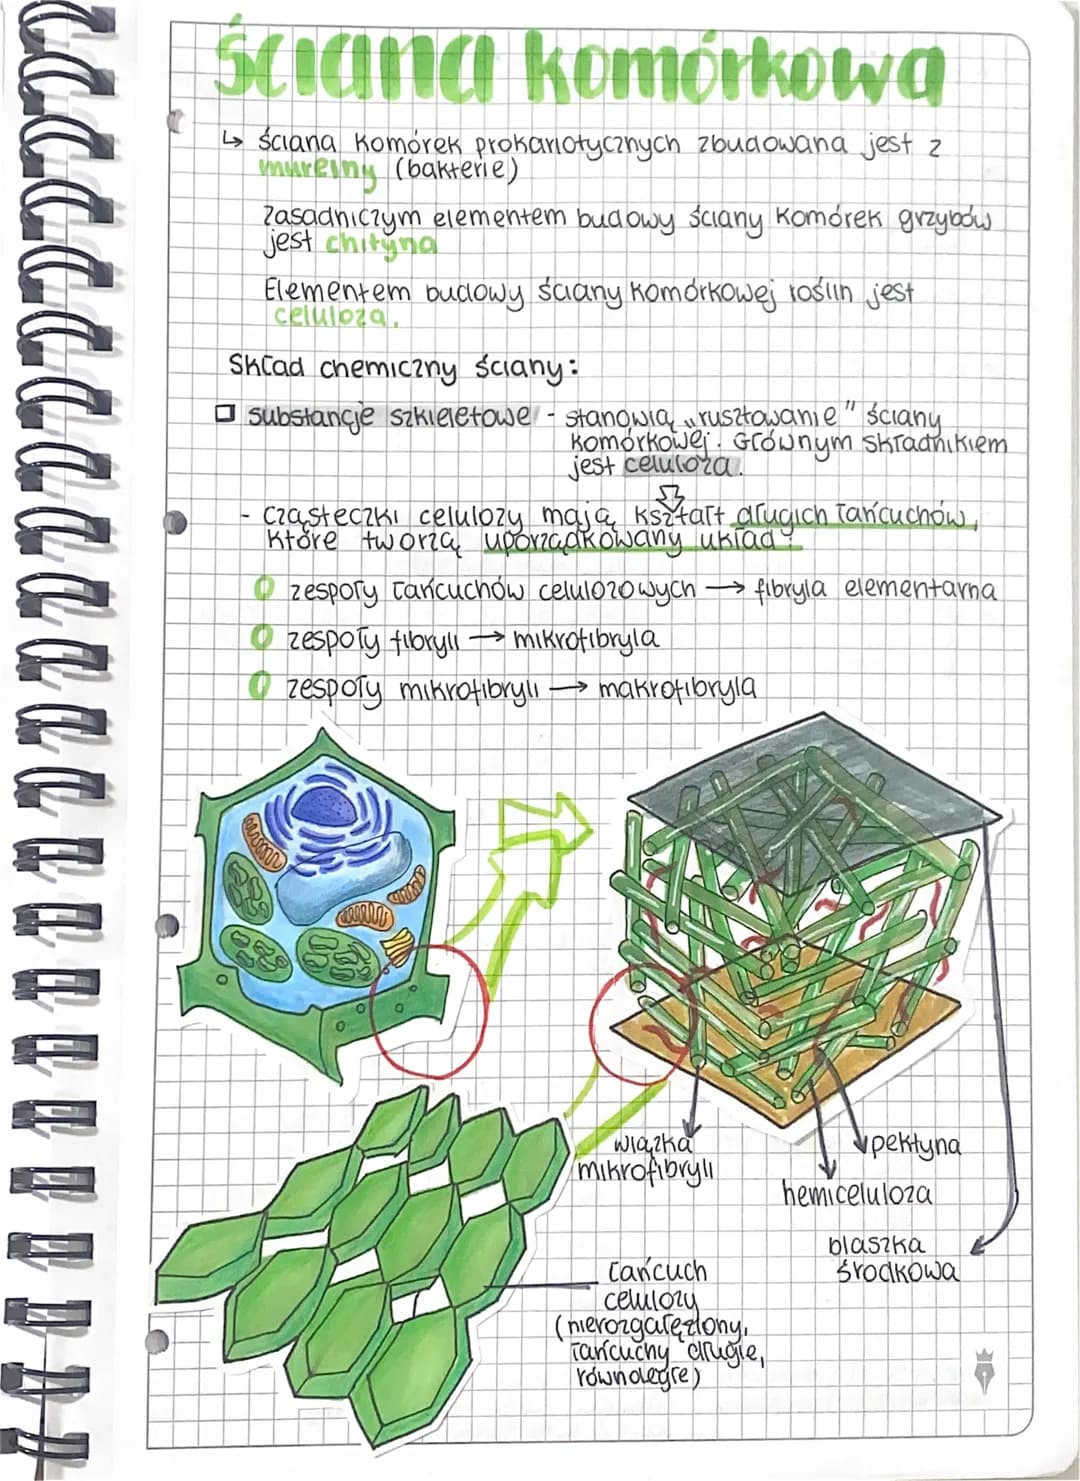 ściana komórkowa
↳ ściana komórek prokariotycznych zbudowana jest z
mureiny (bakterie)
Zasadniczym elementem budowy ściany komórek grzybów
jest chityna
Elementem budowy ściany komórkowej roślin jest
celuloza.
Skład chemiczny ściany:
substancje szkieletowe - stanowią „rusztowanie" ściany
komórkowej. Głównym składnikiem
jest celuloza.
- cząsteczki celulozy mają kształt długich łańcuchów,
które tworzą uporządkowany układ:
zespoły łańcuchów celulozowych → fibryla elementarna
zespoły fibryli → mikrofibryla
zespoły mikrofibryli → makrofibryla
wiązka
mikrofibryli
pektyna
hemiceluloza
blaszka
środkowa
łańcuch
celulozy
(nierozgałęziony,
łańcuchy długie,
równoległe)